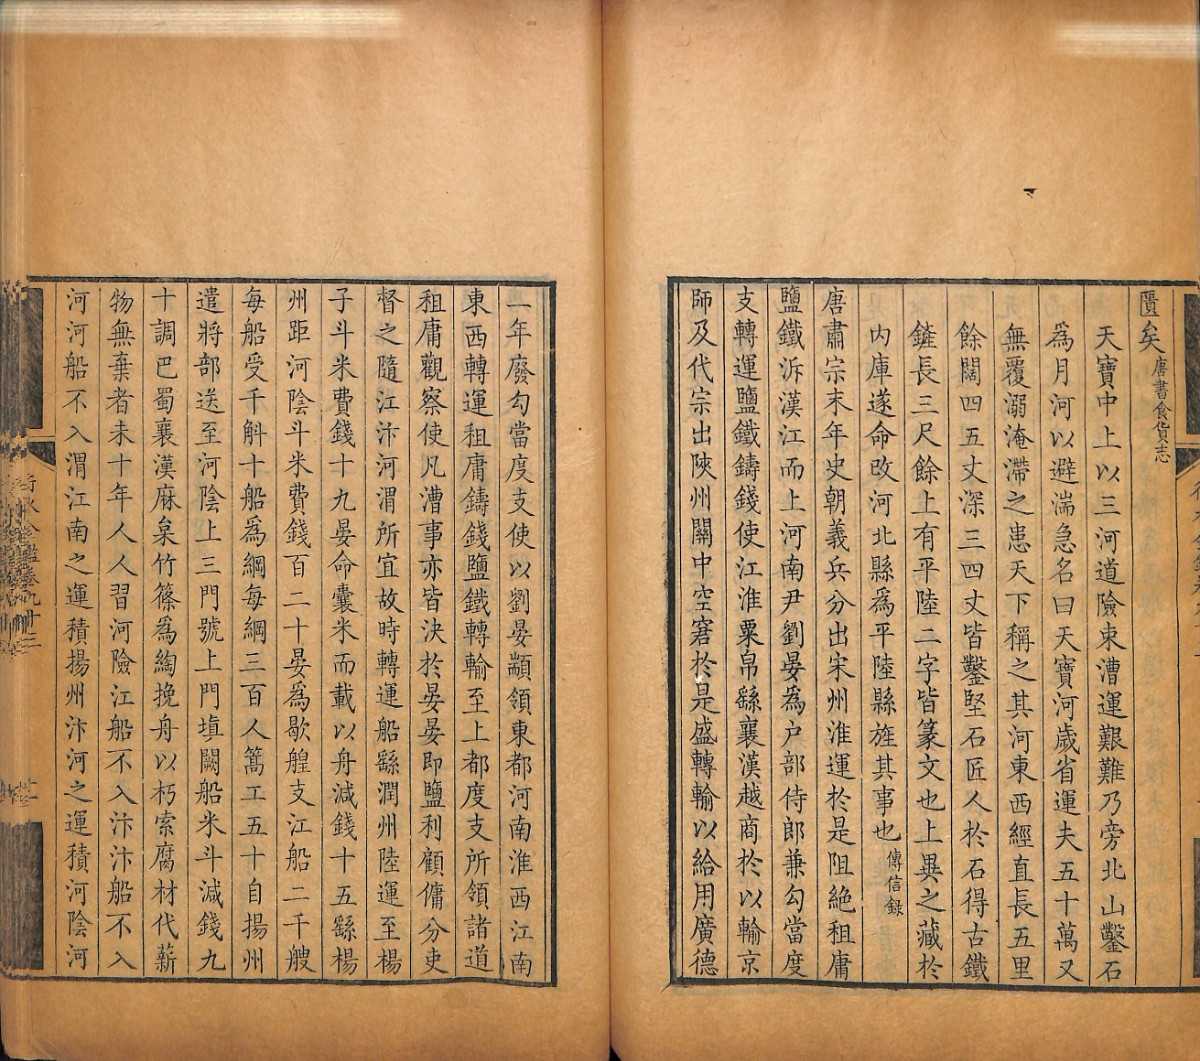 匱矣唐書食貨志
天寶中上以三河道險束漕運艱難乃旁北山鑿石
為月河以避湍急名曰天寶河歲省運夫五十萬又
無覆溺淹滯之患天下稱之其河東西經直長五里
餘闊四五丈深三四丈皆鑿堅石匠人於石得古鐵
鏟長三尺餘上有平陸二字皆篆文也上異之藏於
内庫遂命改河北縣為平陸縣旌其事也傳信錄
唐肅宗末年史朝義兵分出宋州淮運於是阻絶租庸
鹽鐵泝漢江而上河南尹劉晏為户部侍郎兼勾當度
支轉運鹽鐵鑄錢使江淮粟帛繇襄漢越商於以輸京
師及代宗出陝州關中空窘於是盛轉輸以給用廣德
二年廢勾當度支使以劉晏顓領東都河南淮西江南
東西轉運租庸鑄錢鹽鐵轉輸至上都度支所領諸道
租庸觀察使凡漕事亦皆決於晏晏即鹽利顧傭分吏
督之隨江汴河渭所宜故時轉運船繇潤州陸運至楊
子斗米費錢十九晏命囊米而載以舟減錢十五繇楊
州距河陰斗米費錢百二十晏為歇艎支江船二千艘
每船受千斛十船為綱每綱三百人篙工五十自揚州
遣將部送至河陰上三門號上門填闕船米斗減錢九
十調巴蜀襄漢麻枲竹篠為綯挽舟以朽索腐材代薪
物無棄者未十年人人習河險江船不入汴汴船不入
河河船不入渭江南之運積揚州汴河之運積河陰河